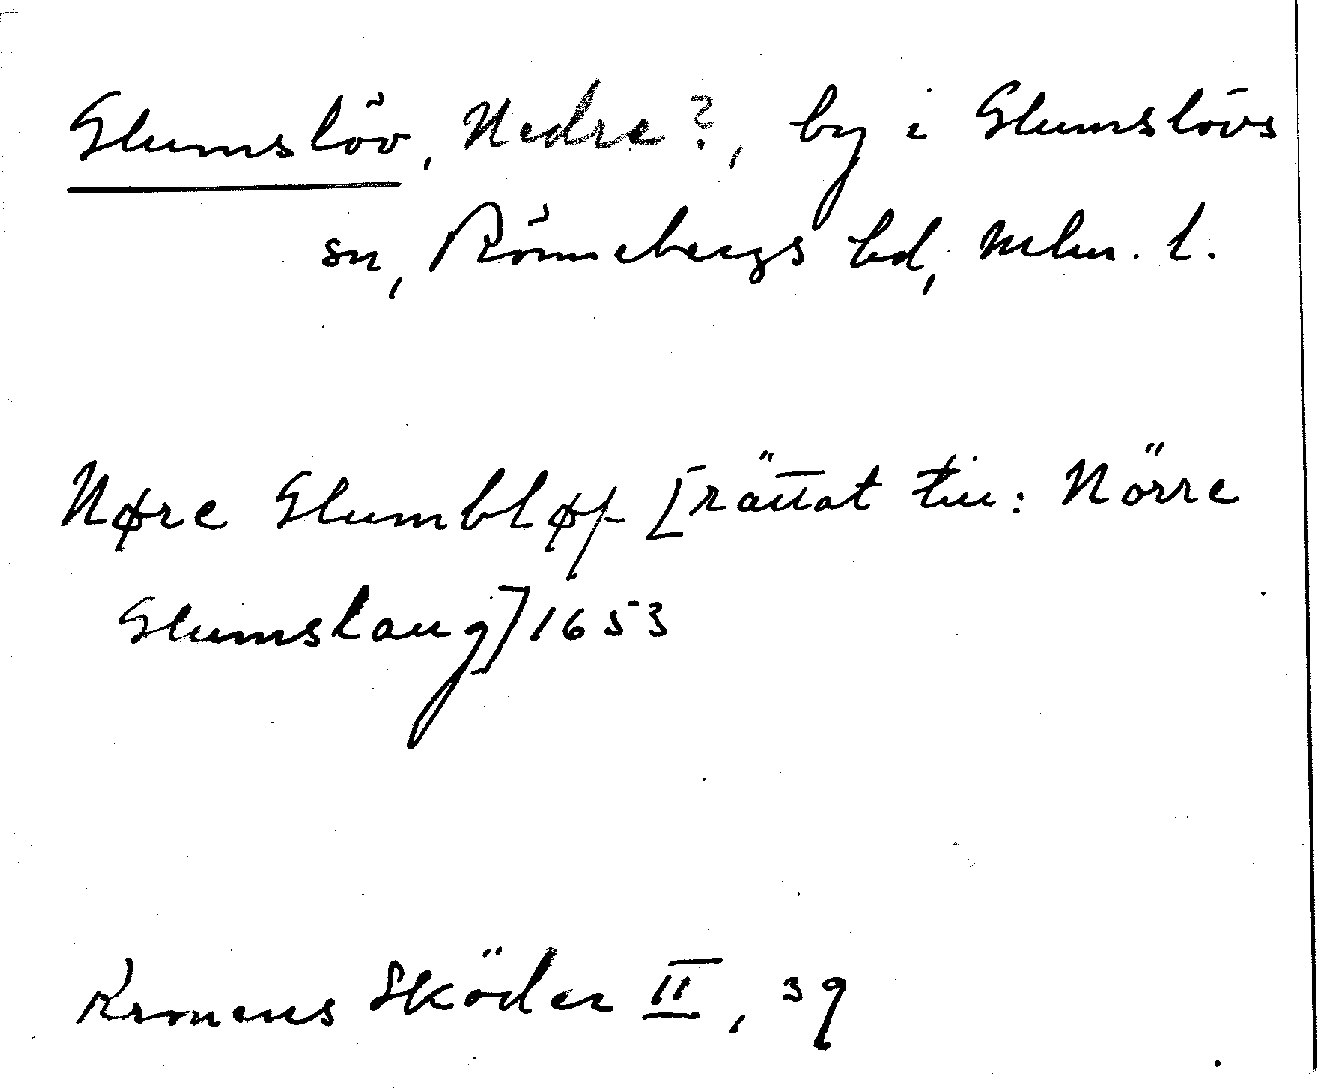 Glumslöv, Nedre?, by i Glumslövs
sn, Rönnebergs hd, Mlm. l.
Nøre Glumbløff [rättat till: Nörre
Glumslaug] 1653
Kronens Sköder II, 39